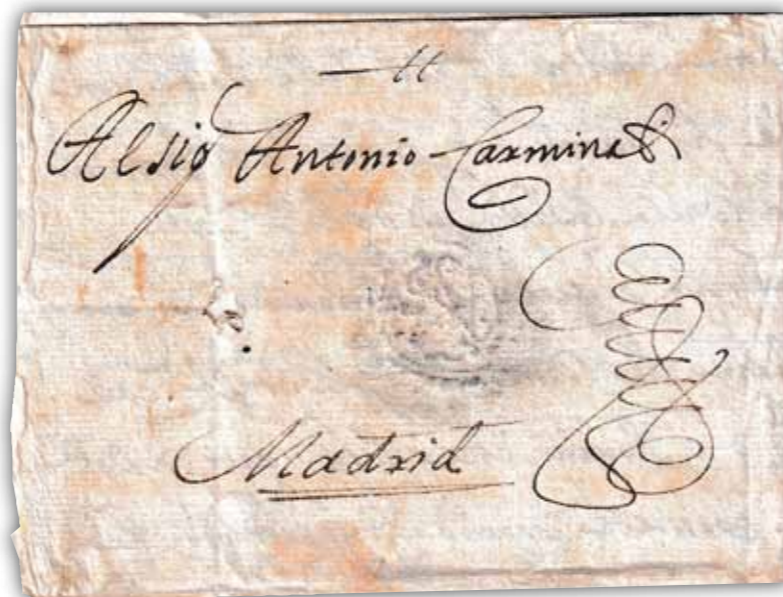 Al sigr Antonio Carminati
Madrid